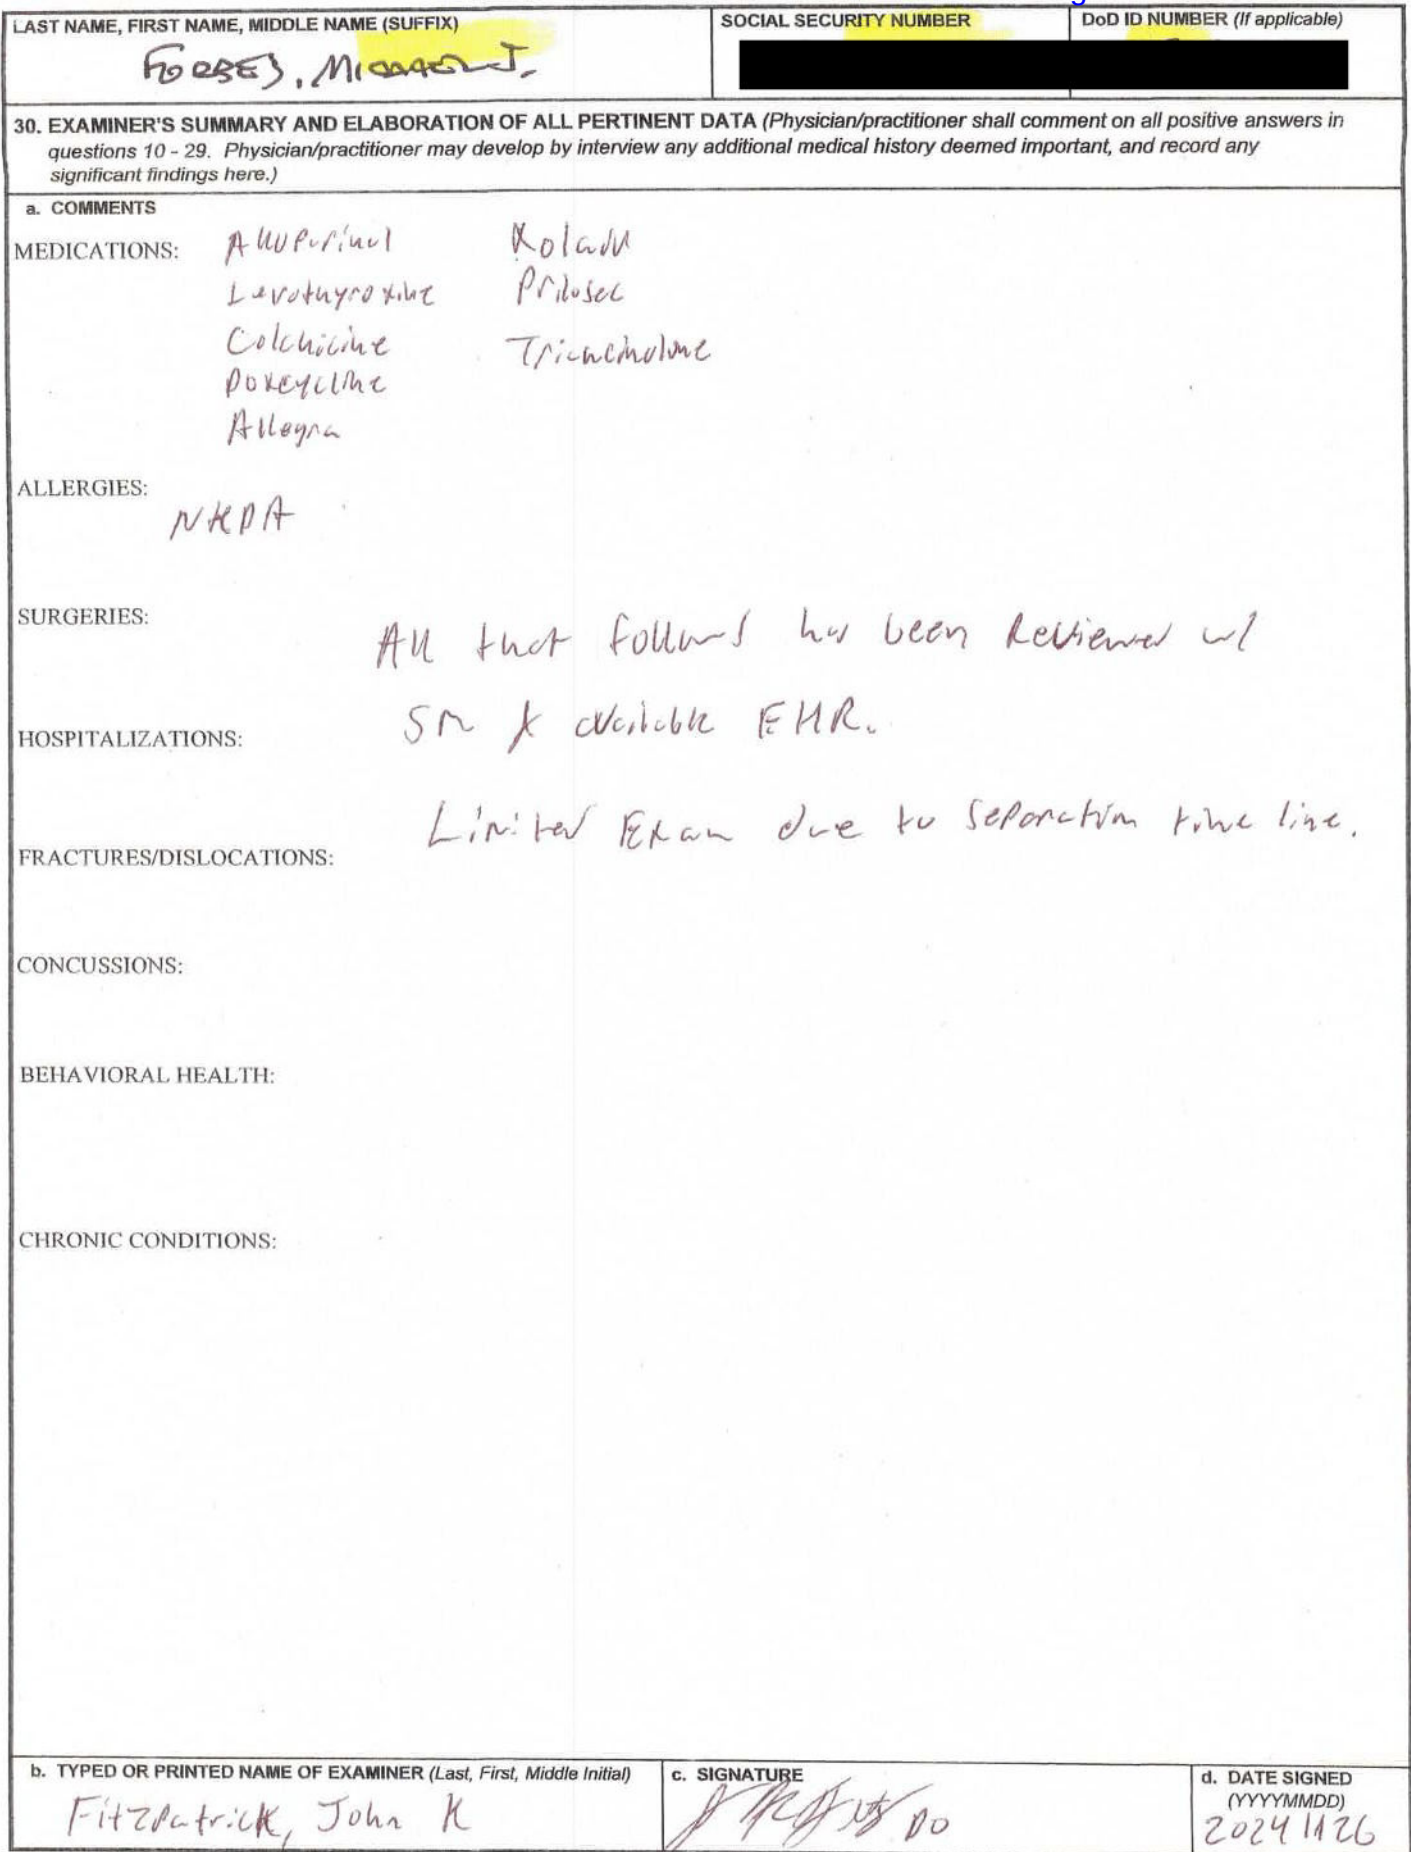 LAST NAME, FIRST NAME, MIDDLE NAME (SUFFIX)
FORBES, MICHAEL J.
SOCIAL SECURITY NUMBER
DoD ID NUMBER (If applicable)
30. EXAMINER'S SUMMARY AND ELABORATION OF ALL PERTINENT DATA (Physician/practitioner shall comment on all positive answers in
questions 10 - 29. Physician/practitioner may develop by interview any additional medical history deemed important, and record any
significant findings here.)
a. COMMENTS
MEDICATIONS: Allopurinol
Levothyroxine Prilosec
Colchicine Triamcinolone
Doxycycline
Allegra
ALLERGIES:
NKDA
SURGERIES:
All that follows has been Reviewed w/
HOSPITALIZATIONS: SM & available EHR.
Limited Exam due to separation time line.
FRACTURES/DISLOCATIONS:
CONCUSSIONS:
BEHAVIORAL HEALTH:
CHRONIC CONDITIONS:
b. TYPED OR PRINTED NAME OF EXAMINER (Last, First, Middle Initial)
Fitzpatrick, John K
c. SIGNATURE
DO
d. DATE SIGNED
(YYYYMMDD)
20241126